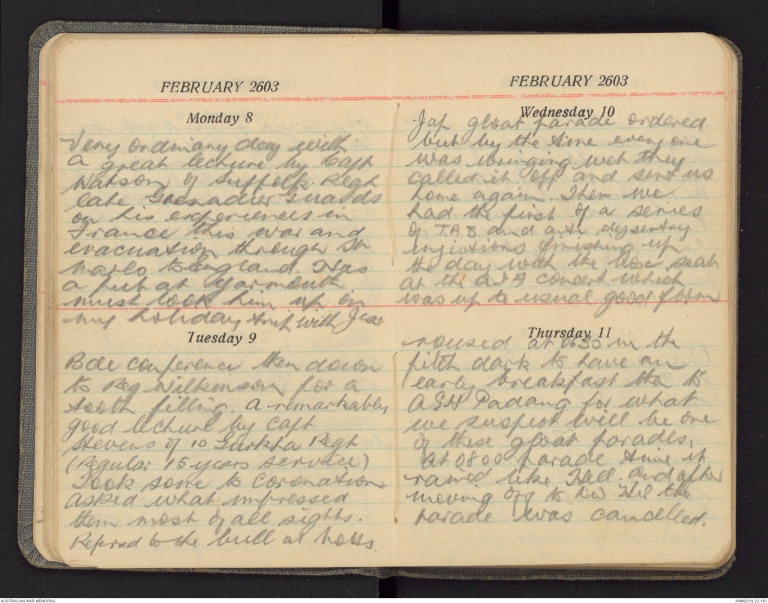 FEBRUARY 2603
Monday 8
Very ordinary day with
a great lecture by Capt
Watson of Suffolk Regt
late Grenadier Guards
on his experiences in
France this war and
evacuation through St
Marlo to England. Has
a pub at Yarmouth
must look him up on
my holiday trip with Jess
Tuesday 9
Bde conference then down
to Reg Wilkinson for a
tooth filling. A remarkably
good lecture by Capt
Stevens of 10 Gurkha Regt
(Regular 15 years service)
Took some to Coronation
asked what impressed
them most of all sights.
Referred to the bull at
FEBRUARY 2603
Wednesday 10
Jap gloat parade ordered
but by the time every one
was wringing wet they
called it off and sent us
home again. Then we
had the first of a series
of T.A.B. and anti dysentry
injections finishing up
the day with the box seats
at the AIF concert which
was up to usual good form
Thursday 11
roused at 0630 in the
pitch dark to have an
early breakfast then to
AGH Padang for what
we suspect will be one
of these gloat parades.
At 0800 parade time it
rained like Hell. And after
moving off to Div Hil the
parade was cancelled.
AUSTRALIAN WAR MEMORIAL